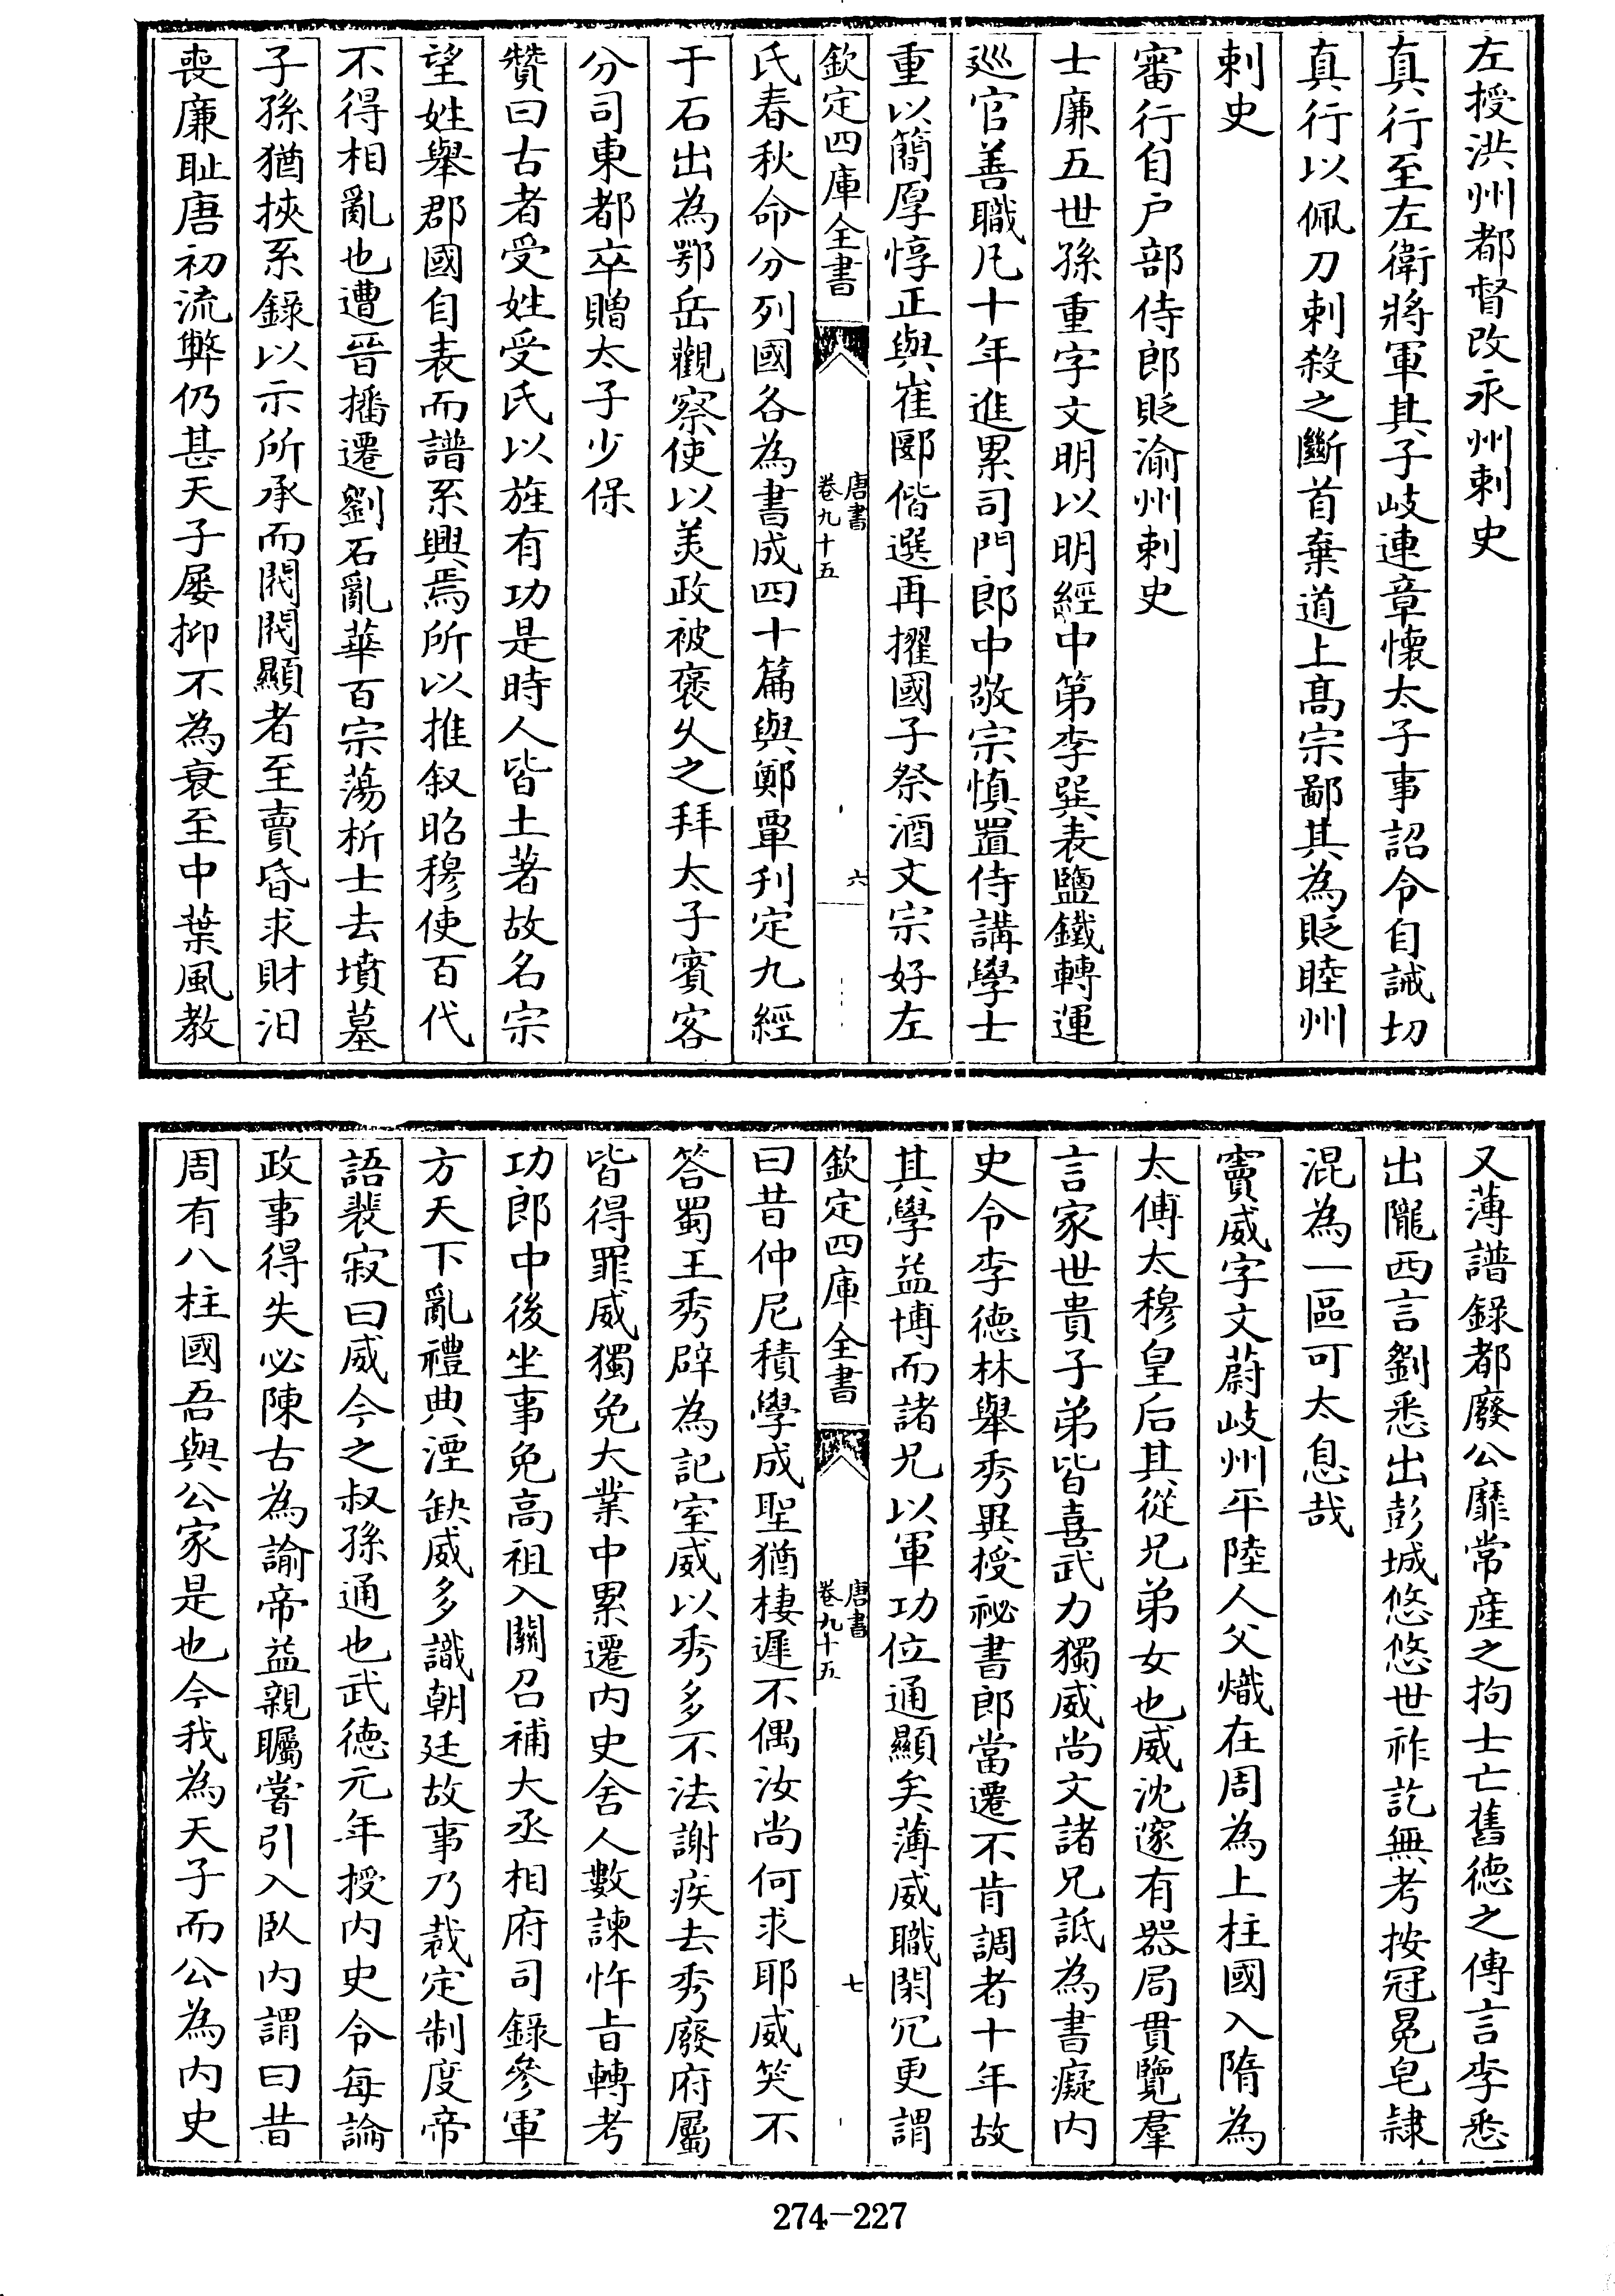 左授洪州都督改永州刺史
真行至左衛將軍其子岐連章懷太子事詔令自誡切
真行以佩刀刺殺之斷首棄道上髙宗鄙其為貶睦州
刺史
審行自户部侍郎貶渝州刺史
士廉五世孫重字文明以明經中第李巽表鹽鐵轉運
巡官善職凡十年進累司門郎中敬宗慎置侍講學士
重以簡厚惇正與崔郾偕選再擢國子祭酒文宗好左
欽定四庫全書
唐書
卷九十五
六
氏春秋命分列國各為書成四十篇與鄭覃刋定九經
于石出為鄂岳觀察使以美政被褒久之拜太子賓客
分司東都卒贈太子少保
贊曰古者受姓受氏以旌有功是時人皆土著故名宗
望姓舉郡國自表而譜系興焉所以推叙昭穆使百代
不得相亂也遭晉播遷劉石亂華百宗蕩析士去墳墓
子孫猶挾系錄以示所承而閥閱顯者至賣昏求財汨
喪廉耻唐初流弊仍甚天子屢抑不為衰至中葉風教
又薄譜錄都廢公靡常産之拘士亡舊德之傳言李悉
出隴西言劉悉出彭城悠悠世祚訖無考按冠冕皂隸
混為一區可太息哉
竇威字文蔚岐州平陸人父熾在周為上柱國入隋為
太傅太穆皇后其從兄弟女也威沈邃有器局貫覽羣
言家世貴子弟皆喜武力獨威尚文諸兄詆為書癡内
史令李德林舉秀異授祕書郎當遷不肯調者十年故
其學益博而諸兄以軍功位通顯矣薄威職閑冗更謂
欽定四庫全書
唐書
卷九十五
七
曰昔仲尼積學成聖猶棲遲不偶汝尚何求耶威笑不
答蜀王秀辟為記室威以秀多不法謝疾去秀廢府屬
皆得罪威獨免大業中累遷内史舍人數諫忤旨轉考
功郎中後坐事免高祖入關召補大丞相府司錄參軍
方天下亂禮典湮缺威多識朝廷故事乃裁定制度帝
語裴寂曰威今之叔孫通也武德元年授内史令每論
政事得失必陳古為諭帝益親矚嘗引入臥内謂曰昔
周有八柱國吾與公家是也今我為天子而公為内史
274-227